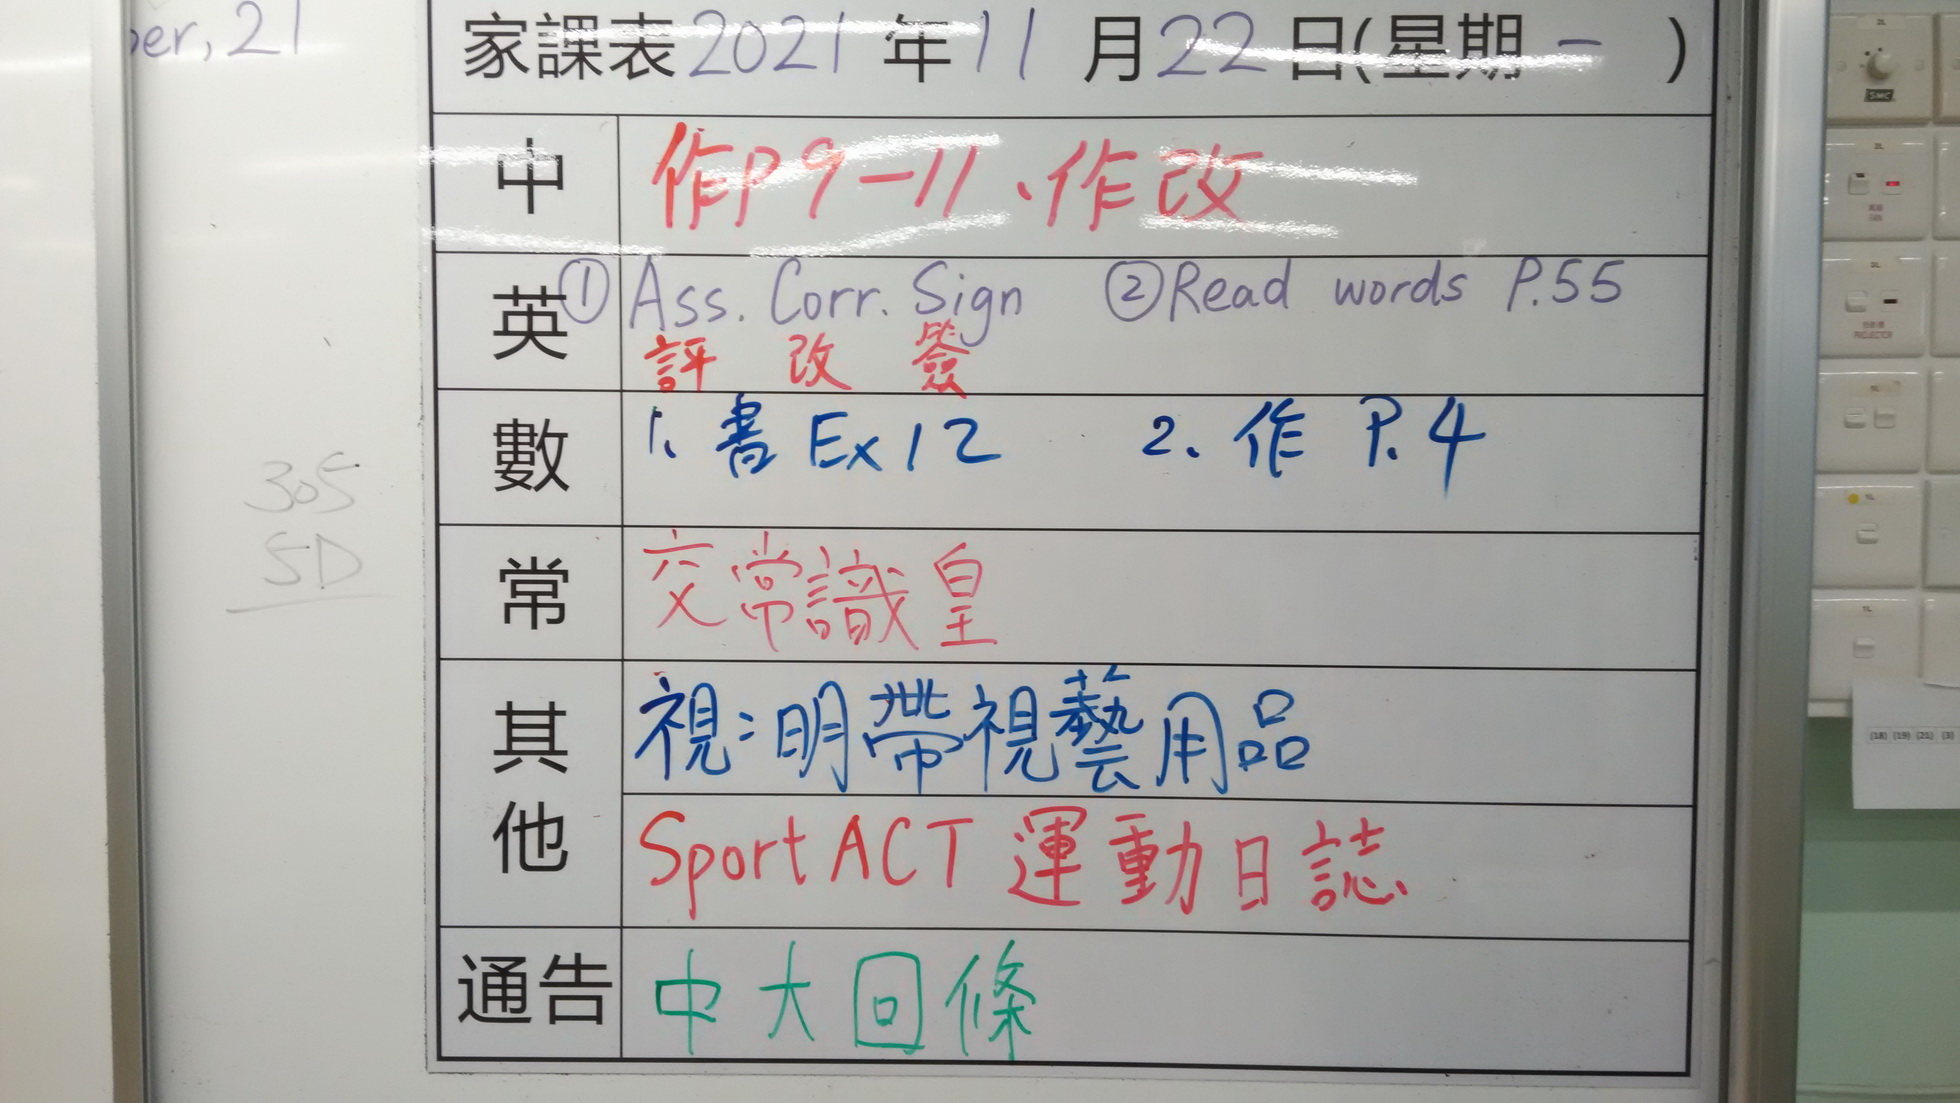 ber, 21
家課表2021年11月22日(星期一)
中 作P9-11、作改
英 ①Ass. Corr. Sign ②Read words P.55
評 改 簽
數 1. 書 Ex12 2. 作 P.4
常 交常識皇
其他 視:明帶視藝用品
SportACT 運動日誌
通告 中大回條
305
5D
SMC
PROJECTOR
(18) (19) (21) (3)